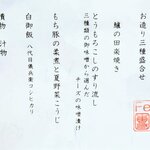 お造り三種盛合せ
鰆の田楽焼き
とうもろこしのすり流し
三種類の卵味噌から選んだ
チーズの味噌漬け
もち豚の柔煮と夏野菜こうじ
白御飯 八代目儀兵衛コシヒカリ
漬物 汁物
re